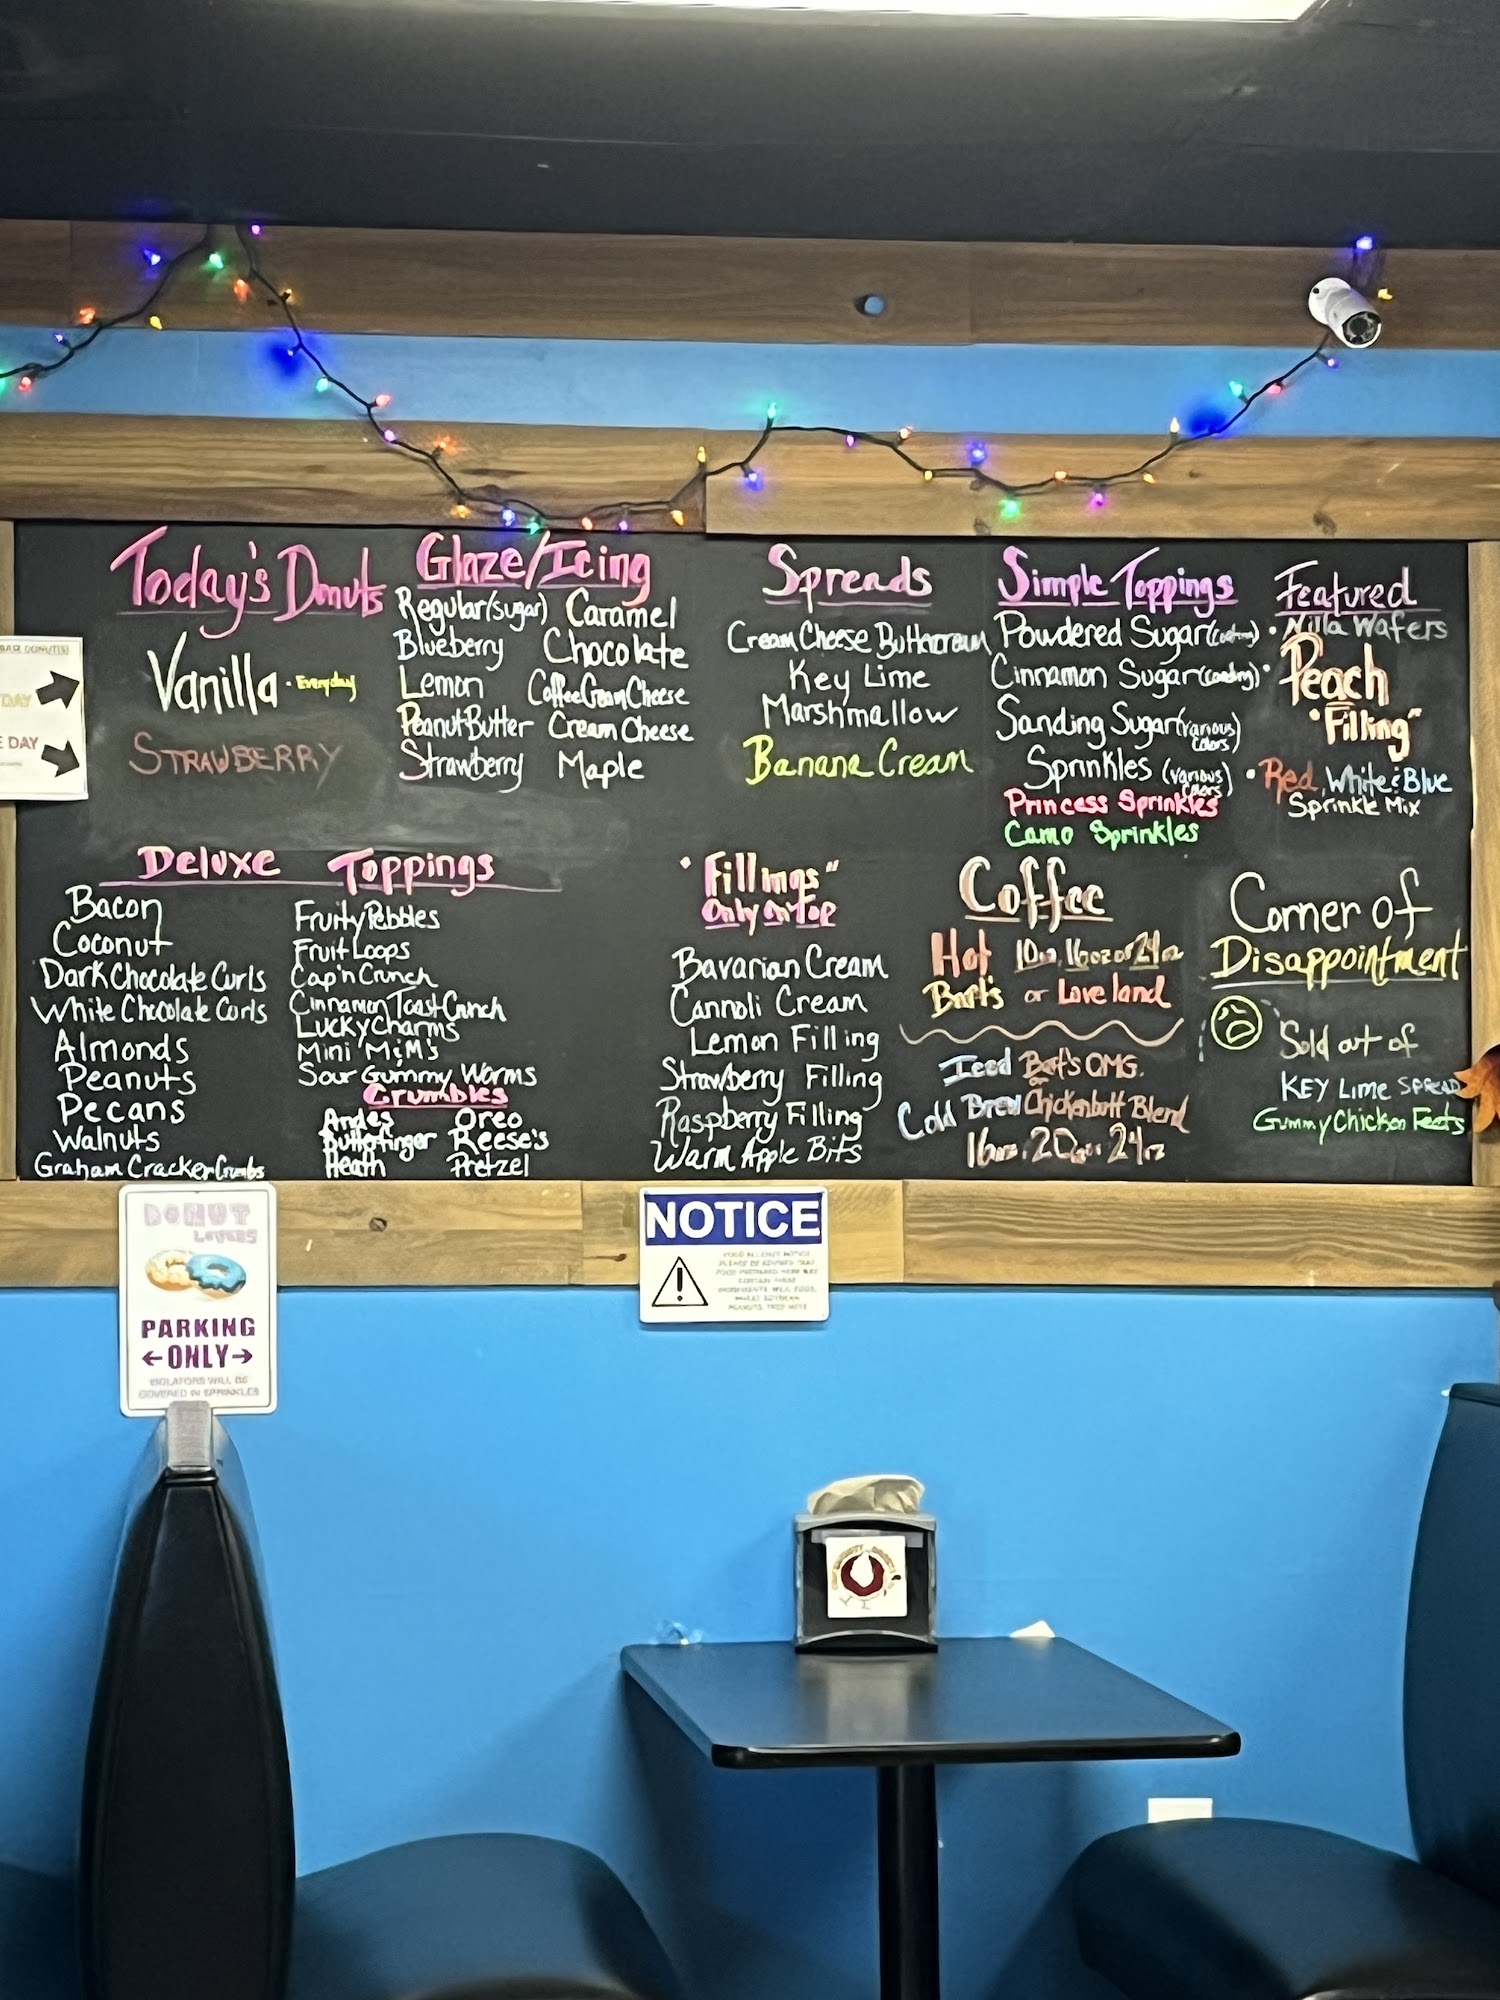 Today's Donuts
Vanilla - Everyday
STRAWBERRY
Glaze/Icing
Regular(sugar) Caramel
Blueberry Chocolate
Lemon Coffee Cream Cheese
Peanut Butter Cream Cheese
Strawberry Maple
Spreads
Cream Cheese Buttercream
Key Lime
Marshmallow
Banana Cream
Simple Toppings
Powdered Sugar (coating)
Cinnamon Sugar (coating)
Sanding Sugar (various colors)
Sprinkles (various colors)
Princess Sprinkles
Camo Sprinkles
Featured
• Nilla Wafers
• Peach
"Filling"
• Red, White & Blue
Sprinkle Mix
DAY
E DAY
Deluxe Toppings
Bacon
Coconut
Dark Chocolate Curls
White Chocolate Curls
Almonds
Peanuts
Pecans
Walnuts
Graham Cracker Crumbs
Fruity Pebbles
Fruit Loops
Cap'n Crunch
Cinnamon Toast Crunch
Lucky Charms
Mini M&M's
Sour Gummy Worms
Crumbles
Andes Oreo
Butterfinger Reese's
Heath Pretzel
"Fillings"
Only on Top
Bavarian Cream
Cannoli Cream
Lemon Filling
Strawberry Filling
Raspberry Filling
Warm Apple Bits
Coffee
Hot 10oz, 16oz or 24oz
Bart's or Loveland
Iced Bart's OMG.
or
Cold Brew Chickenbutt Blend
16oz, 20oz, 24oz
Corner of
Disappointment
Sold out of
KEY Lime SPREAD
Gummy Chicken Feets
DONUT
LOVERS
PARKING
←ONLY→
VIOLATORS WILL BE
COVERED IN SPRINKLES
NOTICE